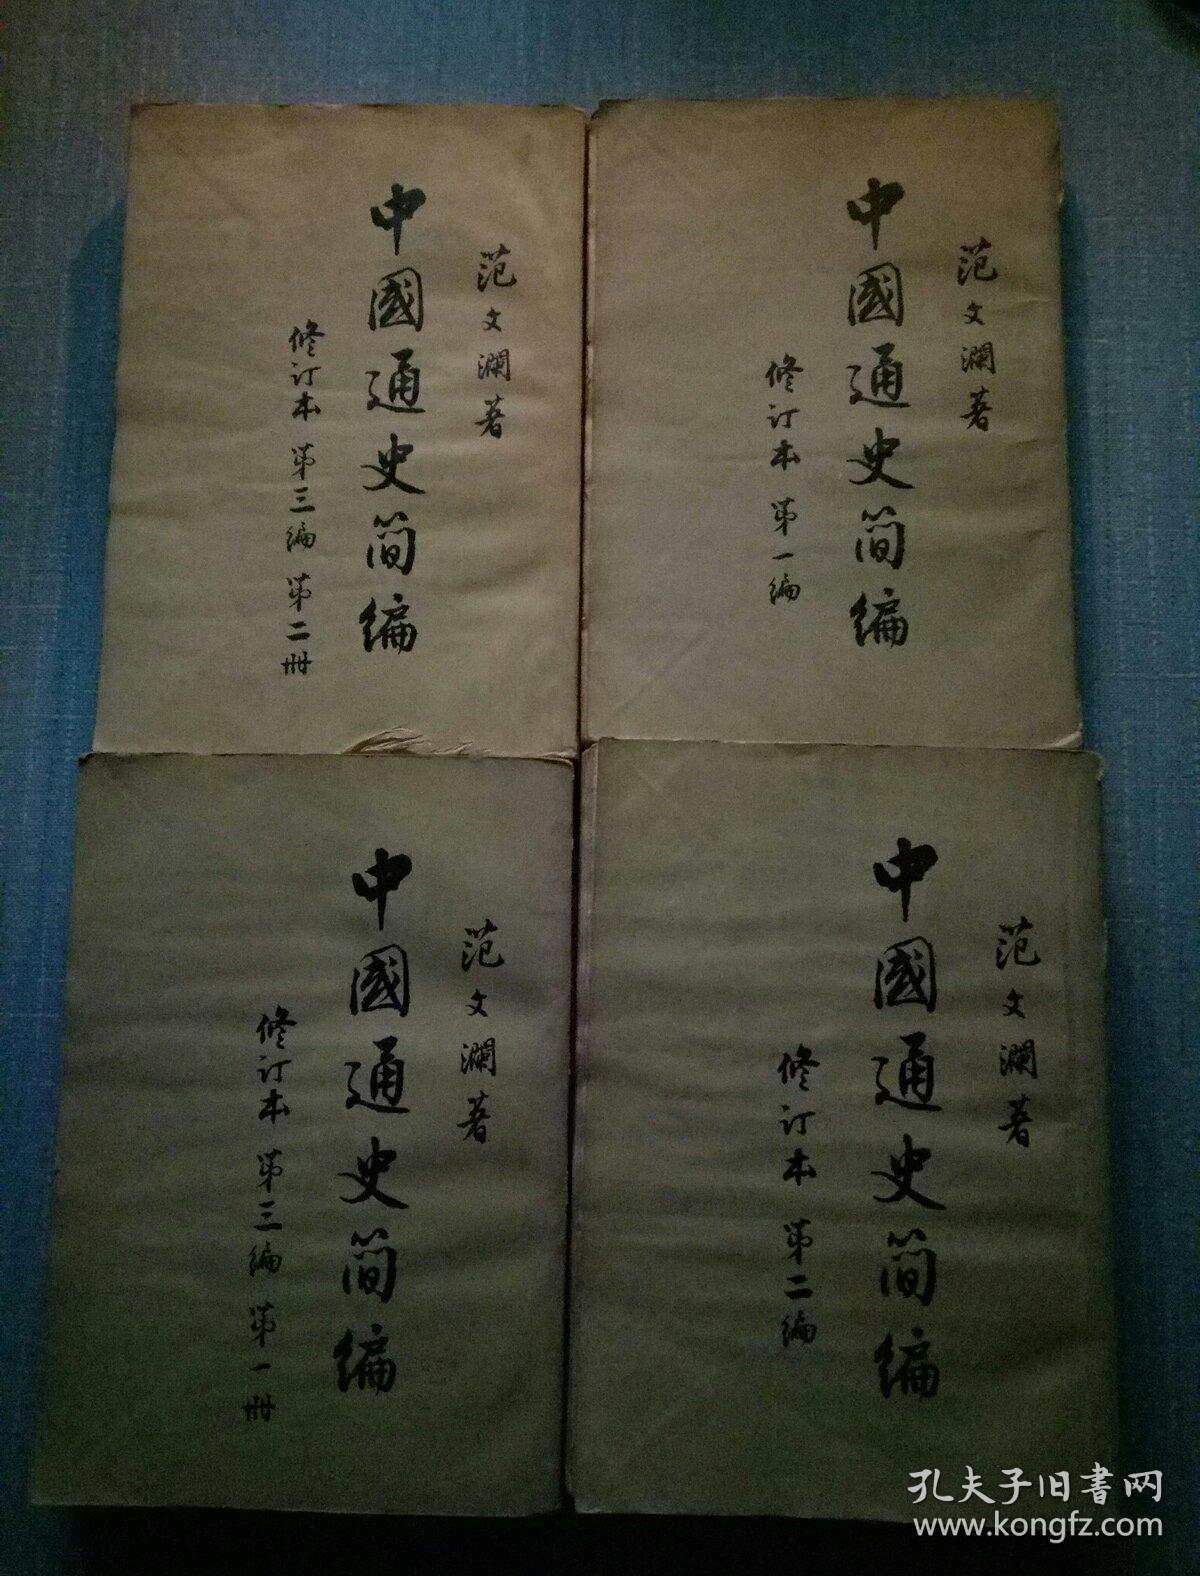 范文澜著
中國通史简编
修订本 第三编 第二册
范文澜著
中國通史简编
修订本 第一编
范文澜著
中國通史简编
修订本 第三编 第一册
范文澜著
中國通史简编
修订本 第二编
孔夫子旧書网
www.kongfz.com